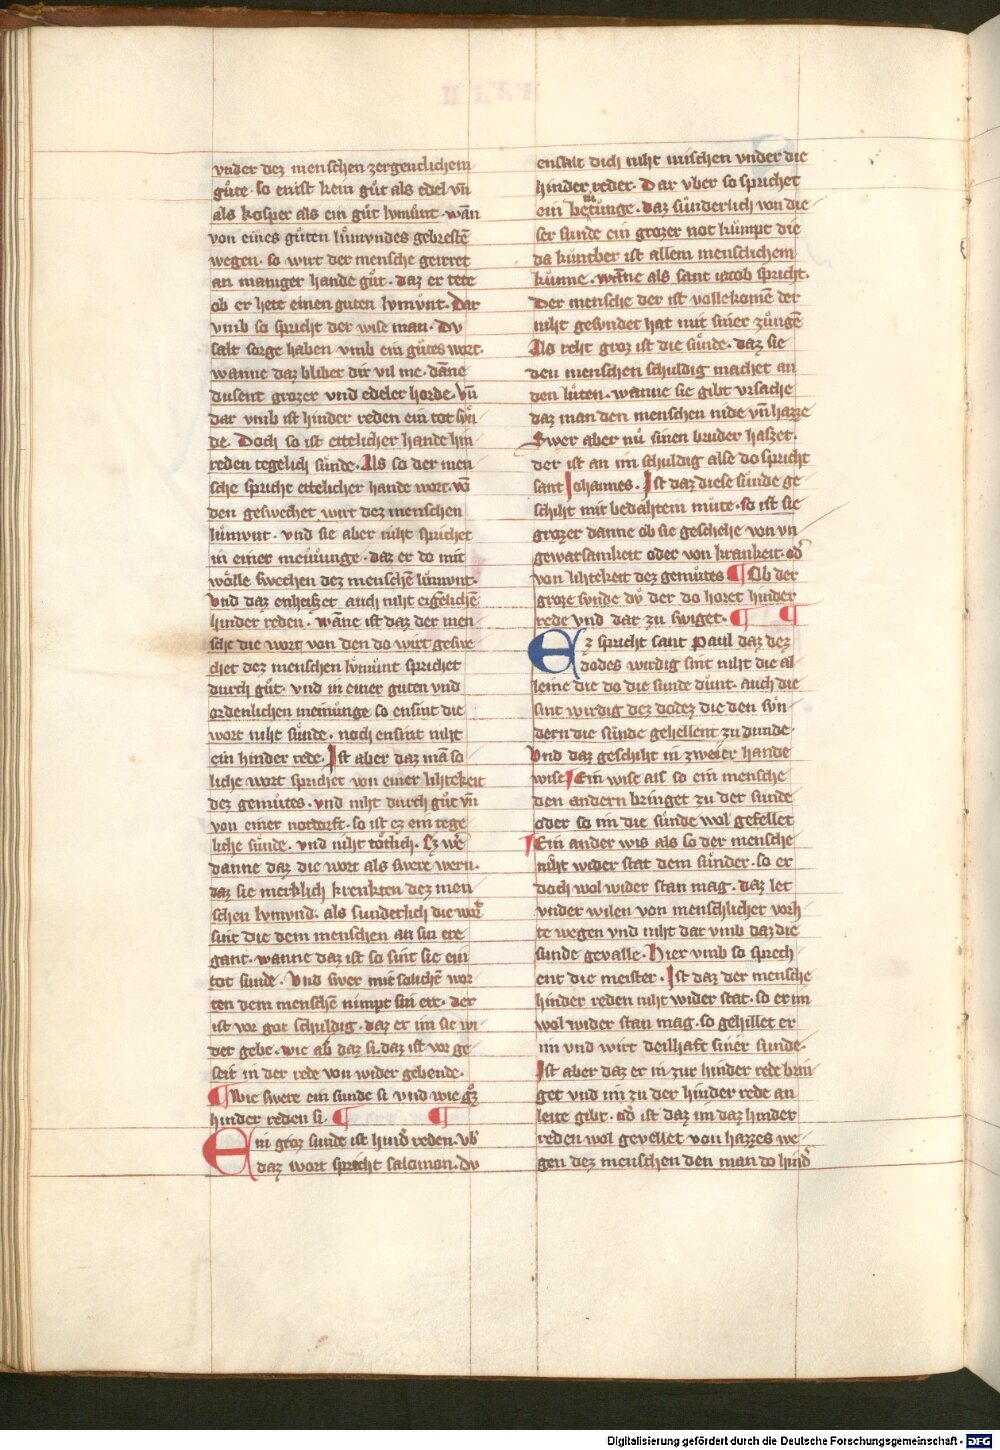 vnder dez menschen zergenclichem
gůte · so enist kein gůt als edel vn̄
als kosper als ein gůt lvmůnt · wān
von eines gůten lůmvndes gebrestē
wegen · so wirt der mensche geirret
an maniger hande gůt · daz er tete
ob er hete einen guten lvmůnt · Dar
vmb so spricht der wise man · Dv
salt sorge haben vmb ein gůtes wort ·
wanne daz blibet dir vil me · dāne
dusent grozer vnd edeler horde · Vn̄
dar vmb ist hinder reden ein tot sůn
de · Doch so ist ettelicher hande hin
reden tegelich sůnde · Als so der men
sche spricht ettelicher hande wort · vō
den geswechet wirt dez menschen
lůmvnt · vnd sie aber niht sprichet
in einer meinunge · daz er do mit
wőlle swechen dez menschē lůmvnt ·
Vnd daz enheizzet auch niht eigēlichē
hinder reden · wāne ist daz der men
sche die wort von den do wirt geswe
chet dez menschen lvmůnt sprichet
durch gůt · vnd in einer guten vnd
ordenlichen meinůnge so ensint die
wort niht sůnde · noch ensint niht
ein hinder rede · Ist aber daz mā so
liche wort sprichet von einer lihtekeit
dez gemůtes · vnd niht durch gůt vn̄
von einer notdorft · so ist ez ein tege
liche sůnde · vnd niht tőtlich · Ez wē
danne daz die wort als swere wern ·
daz sie merklich krenkten dez men
schen lvmvnd · als sunderlich die wort
sint die dem menschen an sin ere
gant · wanne daz ist so sint sie ein
tot sunde · Vnd swer mit solichē wor
ten dem menschē nimpt sin ere · der
ist vor got schuldig · daz er im sie wi
der gebe · wie ab daz si · daz ist vor ge
seit in der rede von wider gebende ·
¶ Wie swere ein sunde si vnd wie grőz
hinder reden si · ¶ ¶
Ein groz sunde ist hind̄ reden · vb̄
daz wort spricht salomon · du
ensalt dich niht mischen vnder die
hinder reder · Dar vber so sprichet
ein betůnge · daz sůnderlich von die
ser sunde ein grozer not kůmpt die
da kůntber ist allem menschlichem
kůnne · wāne als sant iacob spricht ·
Der mensche der ist vollekomē der
niht gesvndet hat mit siner zůngē
Als reht groz ist die sůnde · daz sie
den menschen schuldig machet an
den lůten · wanne sie gibt vrsache
daz man den menschen nide vn̄ hazze
Swer aber nů sinen bruder hasset ·
der ist an im schuldig alse do spricht
sant Iohannes · Ist daz diese sůnde ge
schiht mit bedahtem můte · so ist sie
grozer danne ob sie geschehe von vn
gewarsamkeit oder von krankeit · od̄
von lihtekeit dez gemůtes ¶ Ob der
groze sunde dů der do horet hinder
rede vnd dar zu swiget · ¶ ¶
Ez spricht sant Paul daz dez
dodes wirdig sint niht die al
leine die do die sunde důnt · auch die
sint wirdig dez dodez die den sůn
dern die sůnde gehellent zu dunde ·
Vnd daz geschiht in zweier hande
wise Ein wise als so ein mensche
den andern bringet zu der sunde
oder so im die sůnde wol gefellet
Ein ander wis als so der mensche
niht wider stat dem sůnder · so er
doch wol wider stan mag · daz let
vnder wilen von menschlicher vorh
te wegen vnd niht dar vmb daz die
sunde gevalle · Hier vmb so sprech
ent die meister · Ist daz der mensche
hinder reden niht wider stat · so er im
wol wider stan mag · so gehillet er
im vnd wirt deilhaft siner sunde ·
Ist aber daz er in zur hinder rede brin
get vnd im zu der hinder rede an
leite gibt · od̄ ist daz im daz hinder
reden wol gevellet von hazzes we
gen dez menschen den man do hind̄
Digitalisierung gefördert durch die Deutsche Forschungsgemeinschaft - DFG